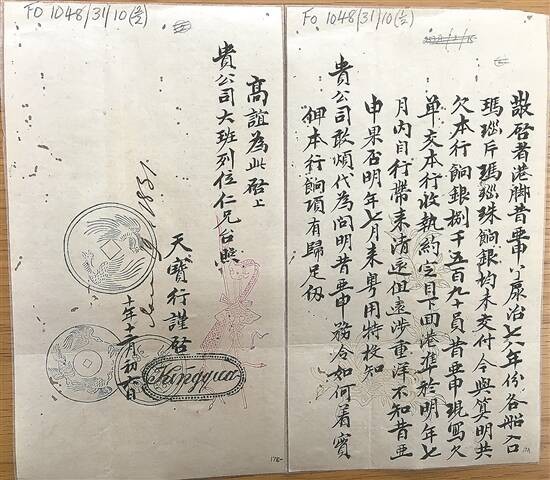 FO 1048/31/10(1/2)
敬啓者港脚昔亜申 七八年份各船入口
瑪瑙片瑪瑙珠餉銀均未交付今與算明共
欠本行餉銀捌千五百九十員昔亜申現寫欠
单交本行收執約定目下回港準於明年七
月内自行帶来清還但遠涉重洋不知昔亜
申果否明年七月来粤用特投知
貴公司敢煩代為問明昔亜申務令如何着實
俾本行餉項有歸足仞
FO 1048/31/10(2/2)
高誼為此啓上
貴公司大班列位仁兄台照
天寳行謹啓
Kingqua
十年十二月初六日
1831